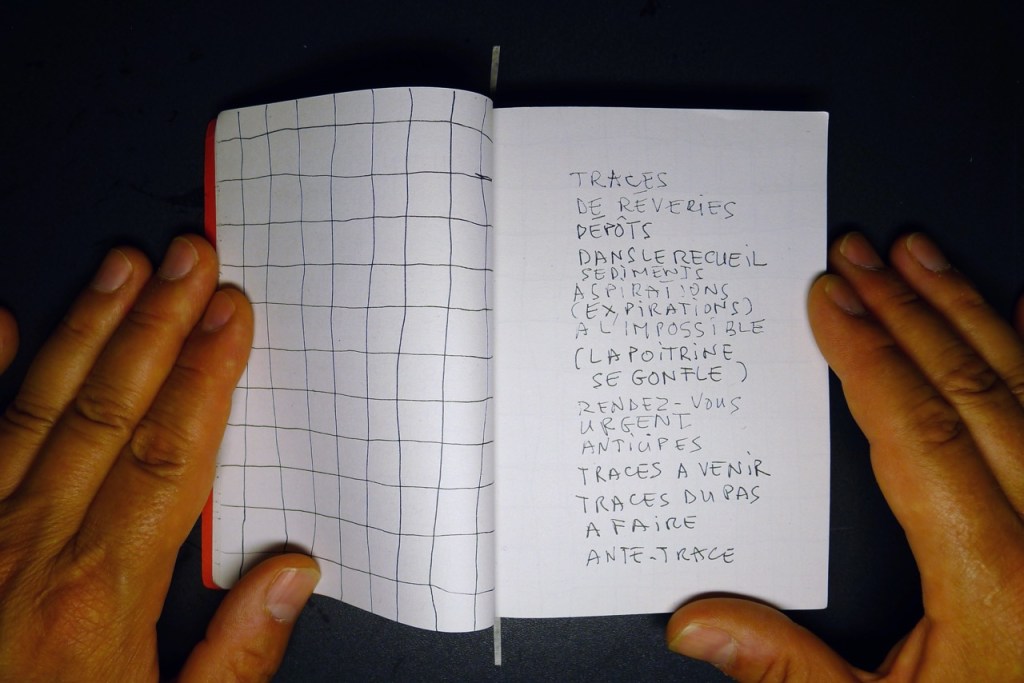 TRACES
DE RÊVERIES
DÉPÔTS
DANS LE RECUEIL
SEDIMENTS
ASPIRATIONS
(EXPIRATIONS)
A L'IMPOSSIBLE
(LA POITRINE
SE GONFLE)
RENDEZ-VOUS
URGENT
ANTICIPES
TRACES A VENIR
TRACES DU PAS
A FAIRE
ANTE-TRACE